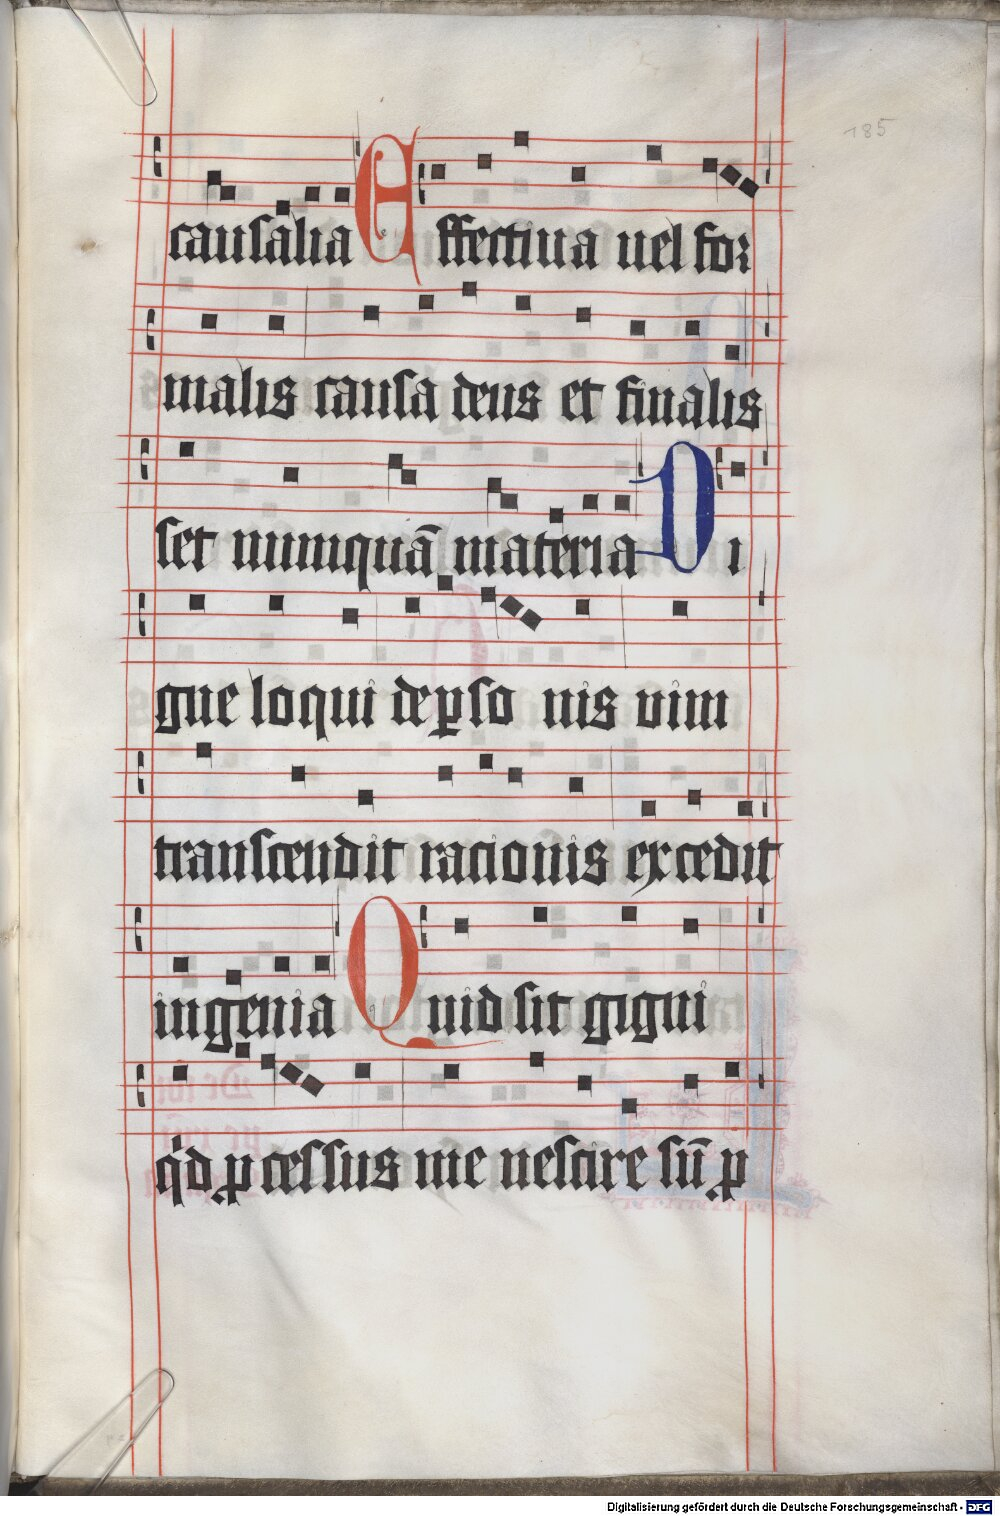 185
causalia Effectiua uel for
malis causa deus et finalis
set numquā materia Di
gne loqui de pso nis uim
transcendit racionis excedit
ingenia Quid sit gigni
qd pcessus me nescire sū p
Digitalisierung gefördert durch die Deutsche Forschungsgemeinschaft - DFG